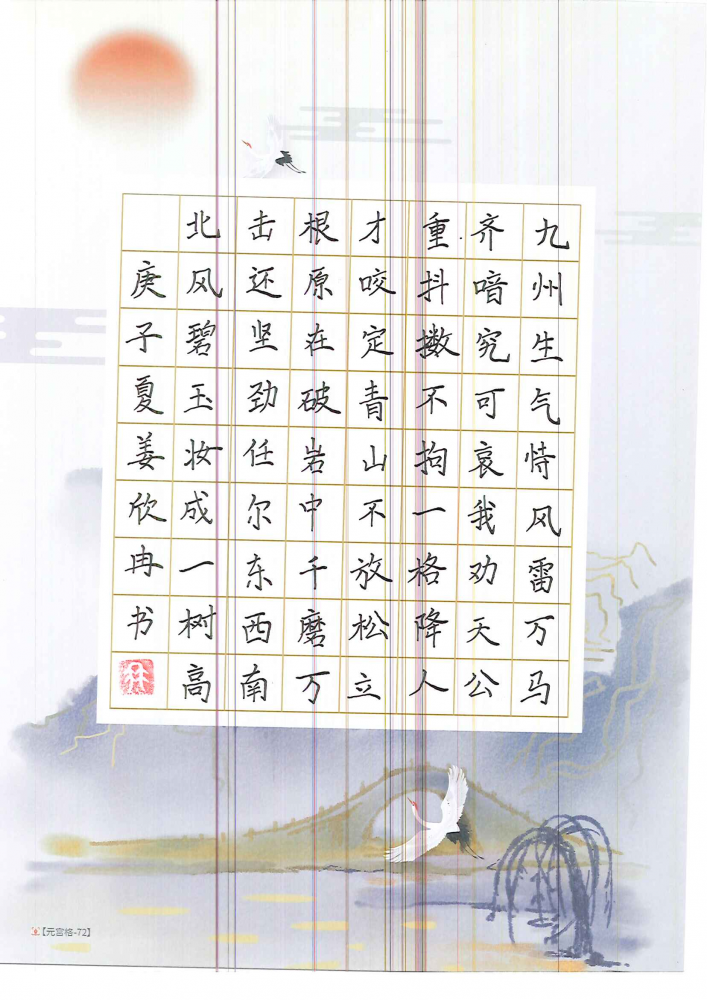 九州生气恃风雷万马
齐喑究可哀我劝天公
重抖擞不拘一格降人
才咬定青山不放松立
根原在破岩中千磨万
击还坚劲任尔东西南
北风碧玉妆成一树高
庚子夏姜欣冉书
【元宫格-72】